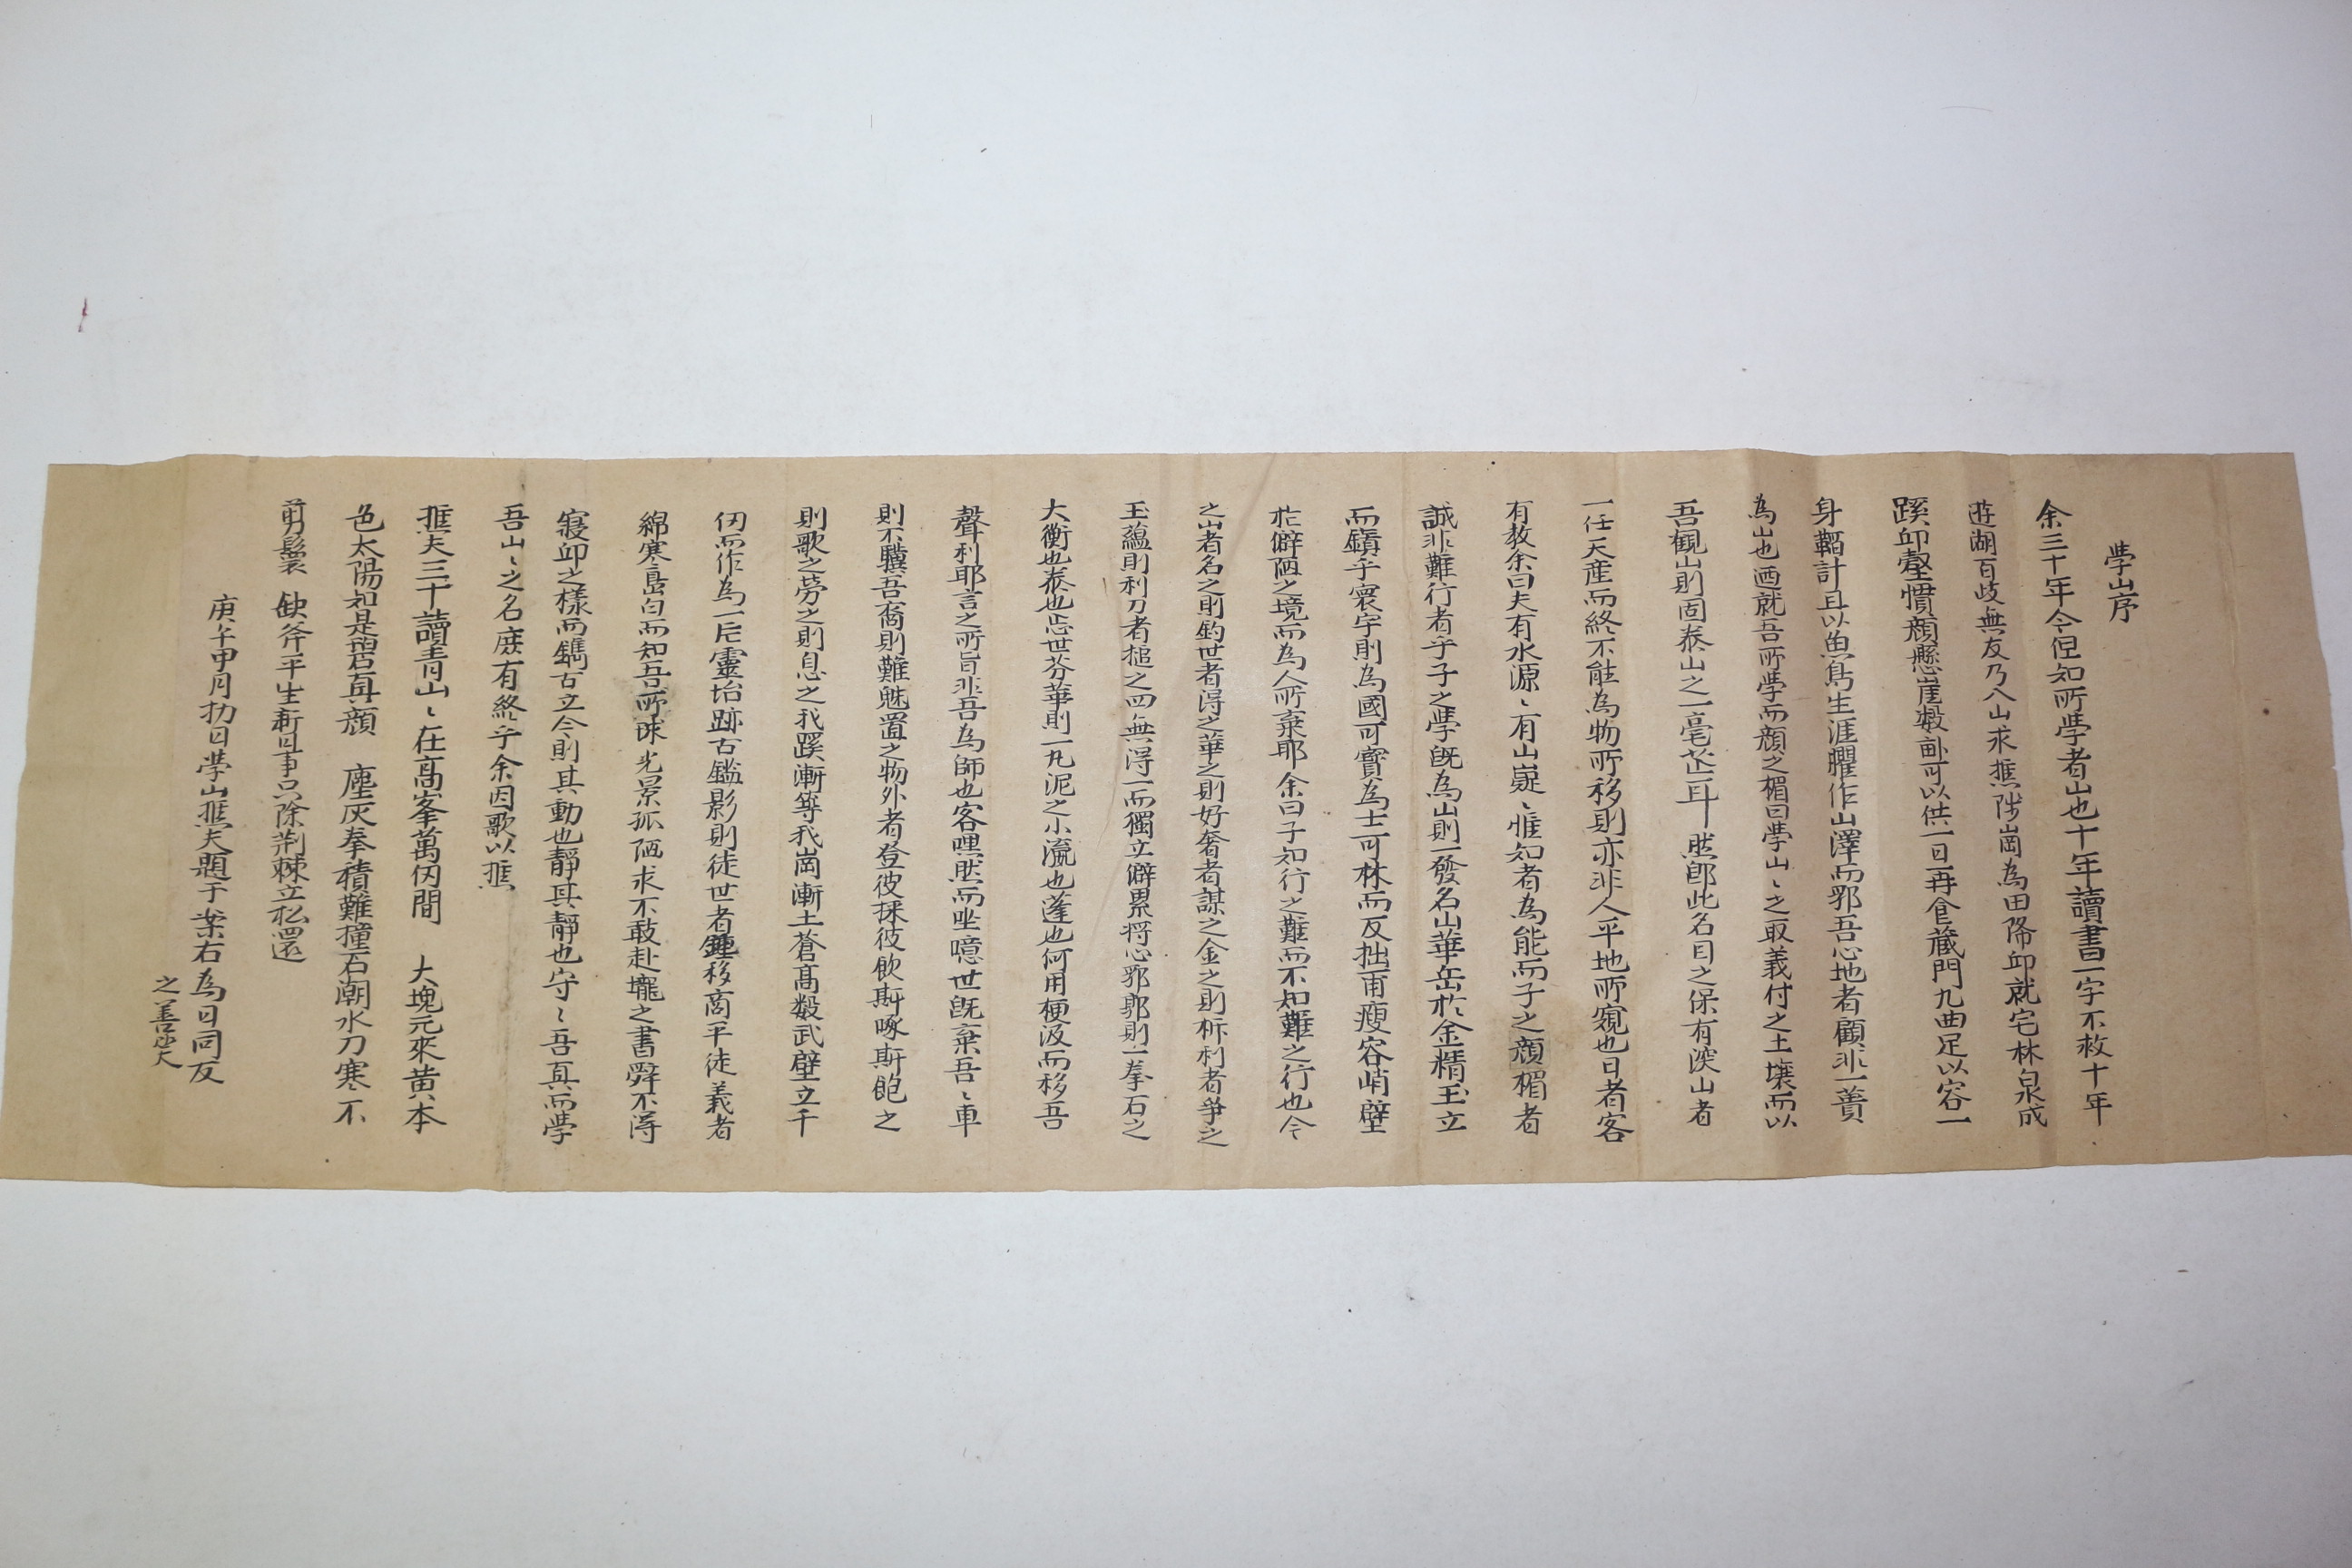 學山序
余三十年今但知所學者山也十年讀書一字不救十年
遊湖百歧無友乃入山求樵陟崗為田降卬就宅林泉成
蹊卬壑慣顏懸崖數畝可以供一日再食蔵門九曲足以容一
身韜計且以魚鳥生涯臞作山澤而郭吾心地者顧非一蕢
為山也廼就吾所學而顏之楣曰學山〻之取義付之土壤而以
吾観山則固泰山之一毫芒耳 然卽此名目之保有深山者
一任天産而終不能為物所移則亦非人平地所窺也日者客
有敎余曰夫有水源〻有山嶷〻惟知者為能而子之顏楣者
誠非難行者乎子之學旣為山則一發名山華岳於金精玉立
而鎮乎寰宇則為國可寶為士可林而反拙甫瘦容峭壁
於僻陋之境而為人所棄耶余曰子知行之難而不知難之行也今
之山者名之則釣世者淂之華之則好奢者謀之金之則析利者爭之
玉蘊則利刀者搥之四無淂一而獨立僻累将心郭郭則一拳石之
大衡也泰也忘世芬華則一丸泥之小瀛也蓬也何用梗汲而移吾
聲利耶言之所旨非吾為師也客哩然而坐噫世旣棄吾〻車
則不驥吾裔則難魅置之物外者登彼採彼飮斯啄斯飽之
則歌之勞之則息之我蹊漸等我崗漸土蒼髙數武壁立千
仞而作為一片靈坮跡古鑑影則徒世者鍾移商平徒義者
綿寒島白而知吾所球光景孤陋求不敢赴壠之書舜不淂
寢卬之樣而鐫古立今則其動也靜其靜也守〻吾真而學
吾山〻之名庶有終乎余因歌以樵
樵夫三十讀青山〻在髙峯萬仞間 大塊元來黄本
色太陽知是碧眞顔 塵灰拳積難撞石潮水刀寒不
剪鬟 缺斧平生斬甚事只除荊棘立松還
庚午甲月扐日學山樵夫題于案右為日同反
之善